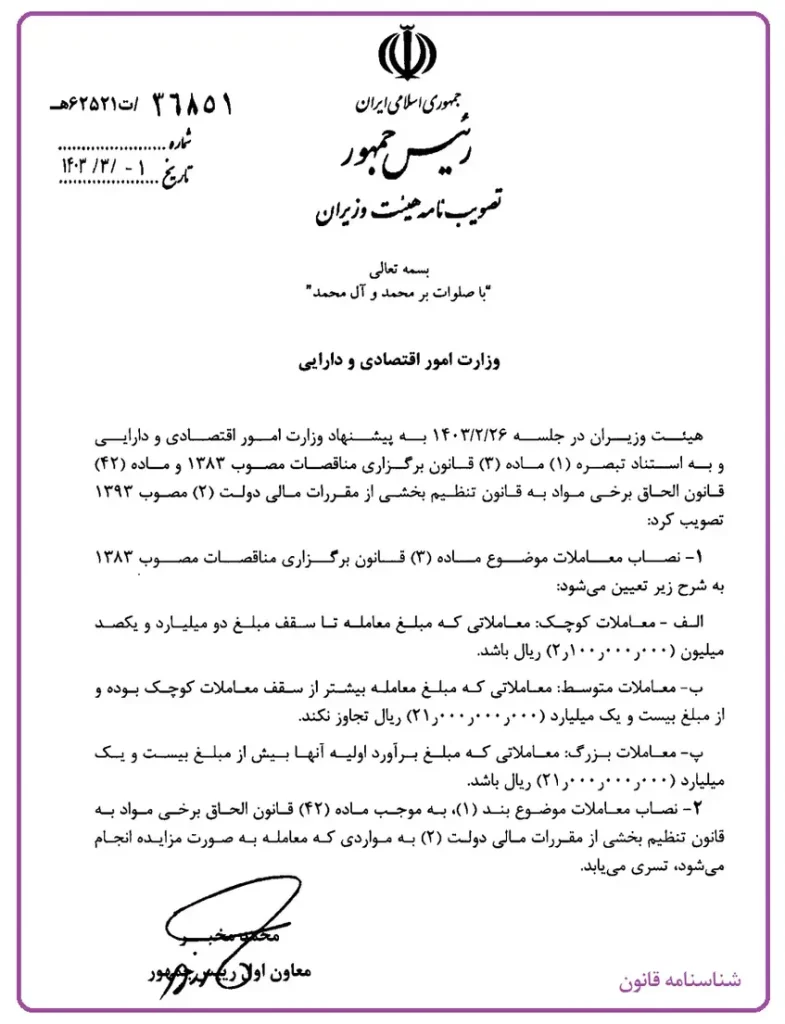 جمهوری اسلامی ایران
رئیس جمهور
تصویب نامه هیئت وزیران
۳۶۸۵۱ /ت۶۲۵۲۱هـ
شماره
تاریخ ۱۴۰۳/۳/-۱
بسمه تعالی
"با صلوات بر محمد و آل محمد"
وزارت امور اقتصادی و دارایی
هیئت وزیران در جلسه ۱۴۰۳/۲/۲۶ به پیشنهاد وزارت امور اقتصادی و دارایی
و به استناد تبصره (۱) ماده (۳) قانون برگزاری مناقصات مصوب ۱۳۸۳ و ماده (۴۲)
قانون الحاق برخی مواد به قانون تنظیم بخشی از مقررات مالی دولت (۲) مصوب ۱۳۹۳
تصویب کرد:
۱- نصاب معاملات موضوع ماده (۳) قانون برگزاری مناقصات مصوب ۱۳۸۳
به شرح زیر تعیین می‌شود:
الف - معاملات کوچک: معاملاتی که مبلغ معامله تا سقف مبلغ دو میلیارد و یکصد
میلیون (۲٫۱۰۰٫۰۰۰٫۰۰۰) ریال باشد.
ب- معاملات متوسط: معاملاتی که مبلغ معامله بیشتر از سقف معاملات کوچک بوده و
از مبلغ بیست و یک میلیارد (۲۱٫۰۰۰٫۰۰۰٫۰۰۰) ریال تجاوز نکند.
پ- معاملات بزرگ: معاملاتی که مبلغ برآورد اولیه آنها بیش از مبلغ بیست و یک
میلیارد (۲۱٫۰۰۰٫۰۰۰٫۰۰۰) ریال باشد.
۲- نصاب معاملات موضوع بند (۱)، به موجب ماده (۴۲) قانون الحاق برخی مواد به
قانون تنظیم بخشی از مقررات مالی دولت (۲) به مواردی که معامله به صورت مزایده انجام
می‌شود، تسری می‌یابد.
محمد مخبر
معاون اول رییس جمهور
شناسنامه قانون